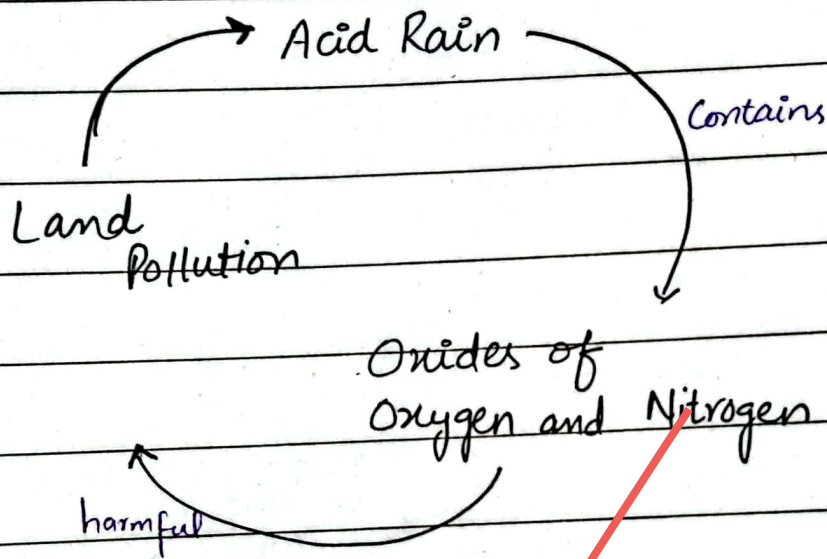 Acid Rain
Contains
Land
Pollution
Oxides of
Oxygen and Nitrogen
harmful